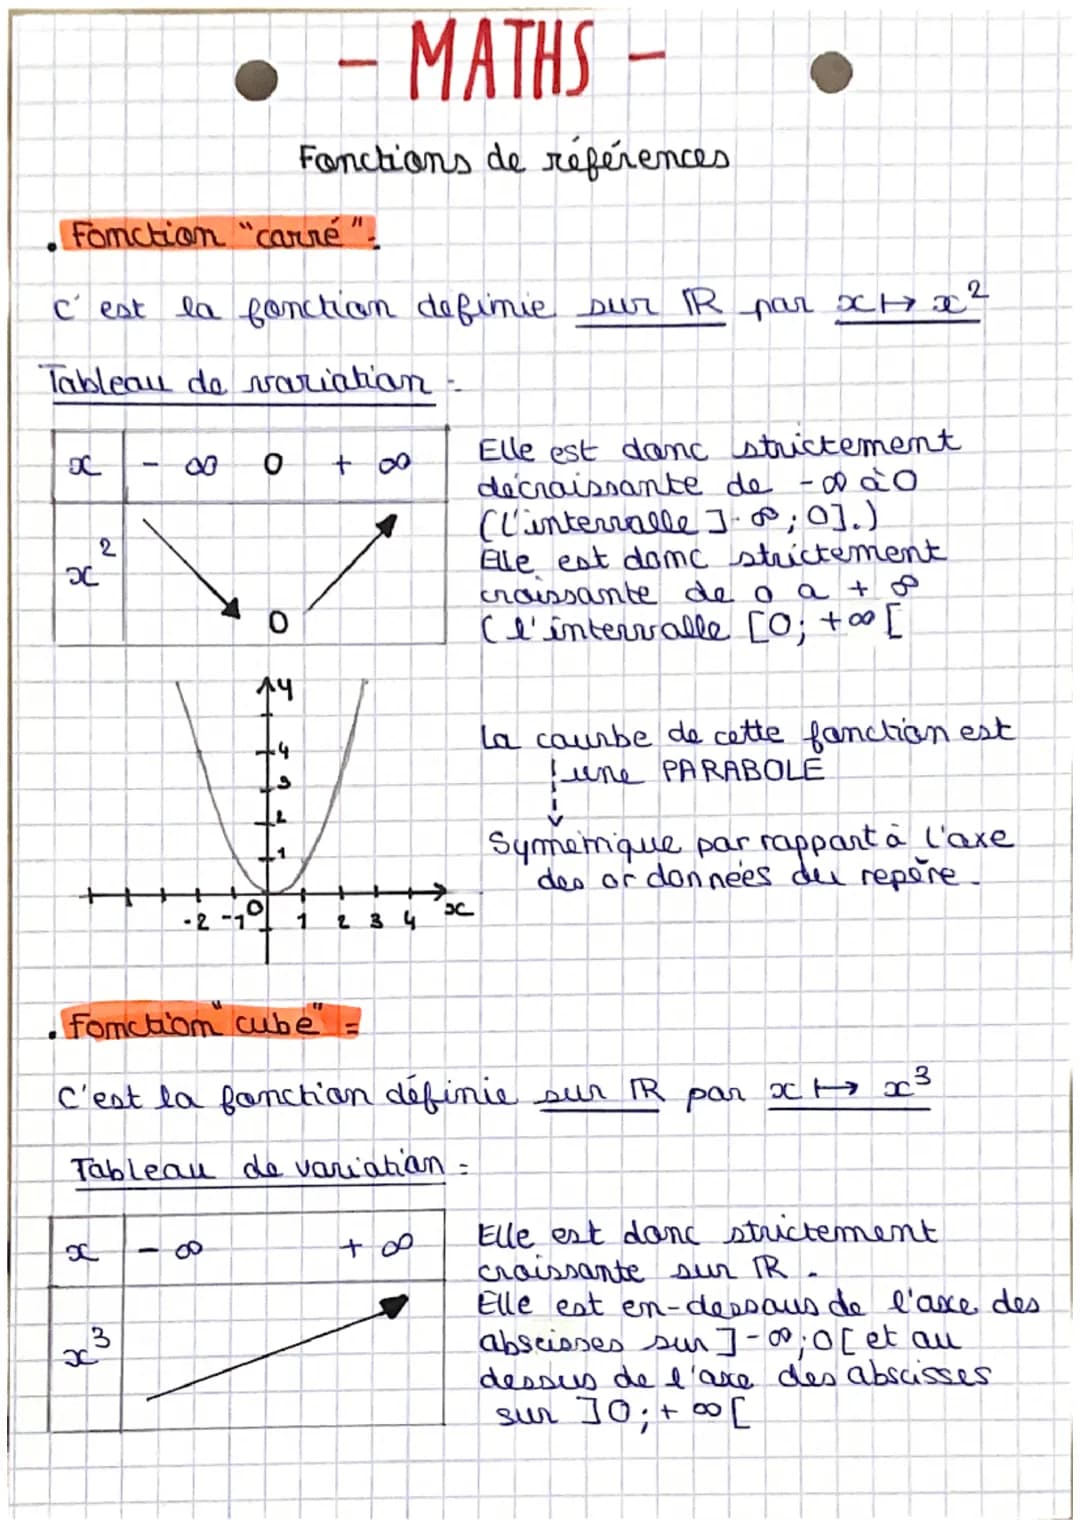 - MATHS -
Fonctions de références
• Fonction "carré" :
C'est la fonction definie sur ℝ par x ↦ x²
Tableau de variation :
x - ∞ 0 + ∞
x² 0
Elle est donc strictement
décroissante de -∞ à 0
(l'intervalle ]-∞; 0].)
Elle est donc strictement
croissante de 0 a + ∞
(l'intervalle [0; +∞[
y
4
3
2
1
-2 -1 0 1 2 3 4 x
La courbe de cette fonction est
une PARABOLE
Symétrique par rapport à l'axe
des ordonnées du repère.
• Fonction "cube" =
C'est la fonction définie sur ℝ par x ↦ x³
Tableau de variation =
x - ∞ + ∞
x³
Elle est donc strictement
croissante sur ℝ.
Elle est en-dessous de l'axe des
abscisses sur ]-∞;0[ et au
dessus de l'axe des abscisses
sur ]0;+ ∞[